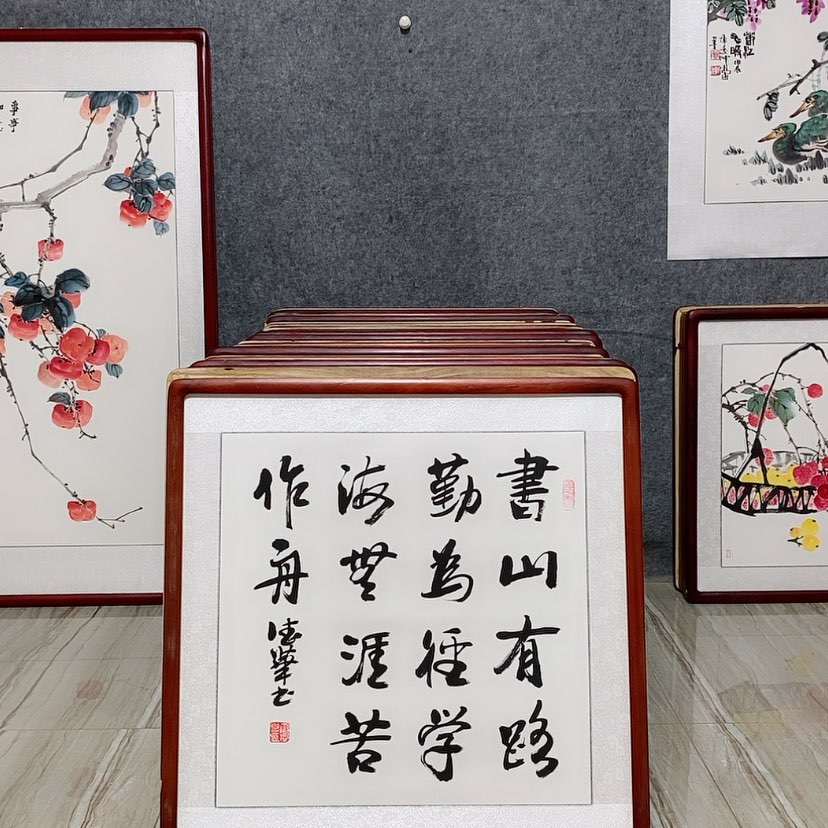 書山有路
勤為徑学
海無涯苦
作舟
德華书